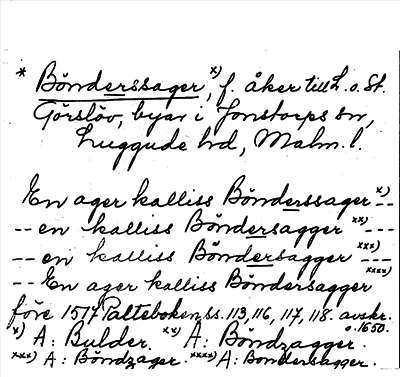 * Bönderssager,ˣ⁾ f. åker till L. o. St.
Görslöv, byar i Jonstorps sn,
Luggude hd, Malm. l.
En ager kalliss Bönderssagerˣ⁾--
-- en kalliss Böndersaggerˣˣ⁾---
-- en kalliss Böndersaggerˣˣˣ⁾---
-- En ager kalliss Böndersaggerˣˣˣˣ⁾
före 1517 Palteboken ss. 113, 116, 117, 118. avskr.
o. 1650.
ˣ⁾ A: Bulder. ˣˣ⁾ A: Böndzagger.
ˣˣˣ⁾ A: Böndzager. ˣˣˣˣ⁾ A: Bondersagger.